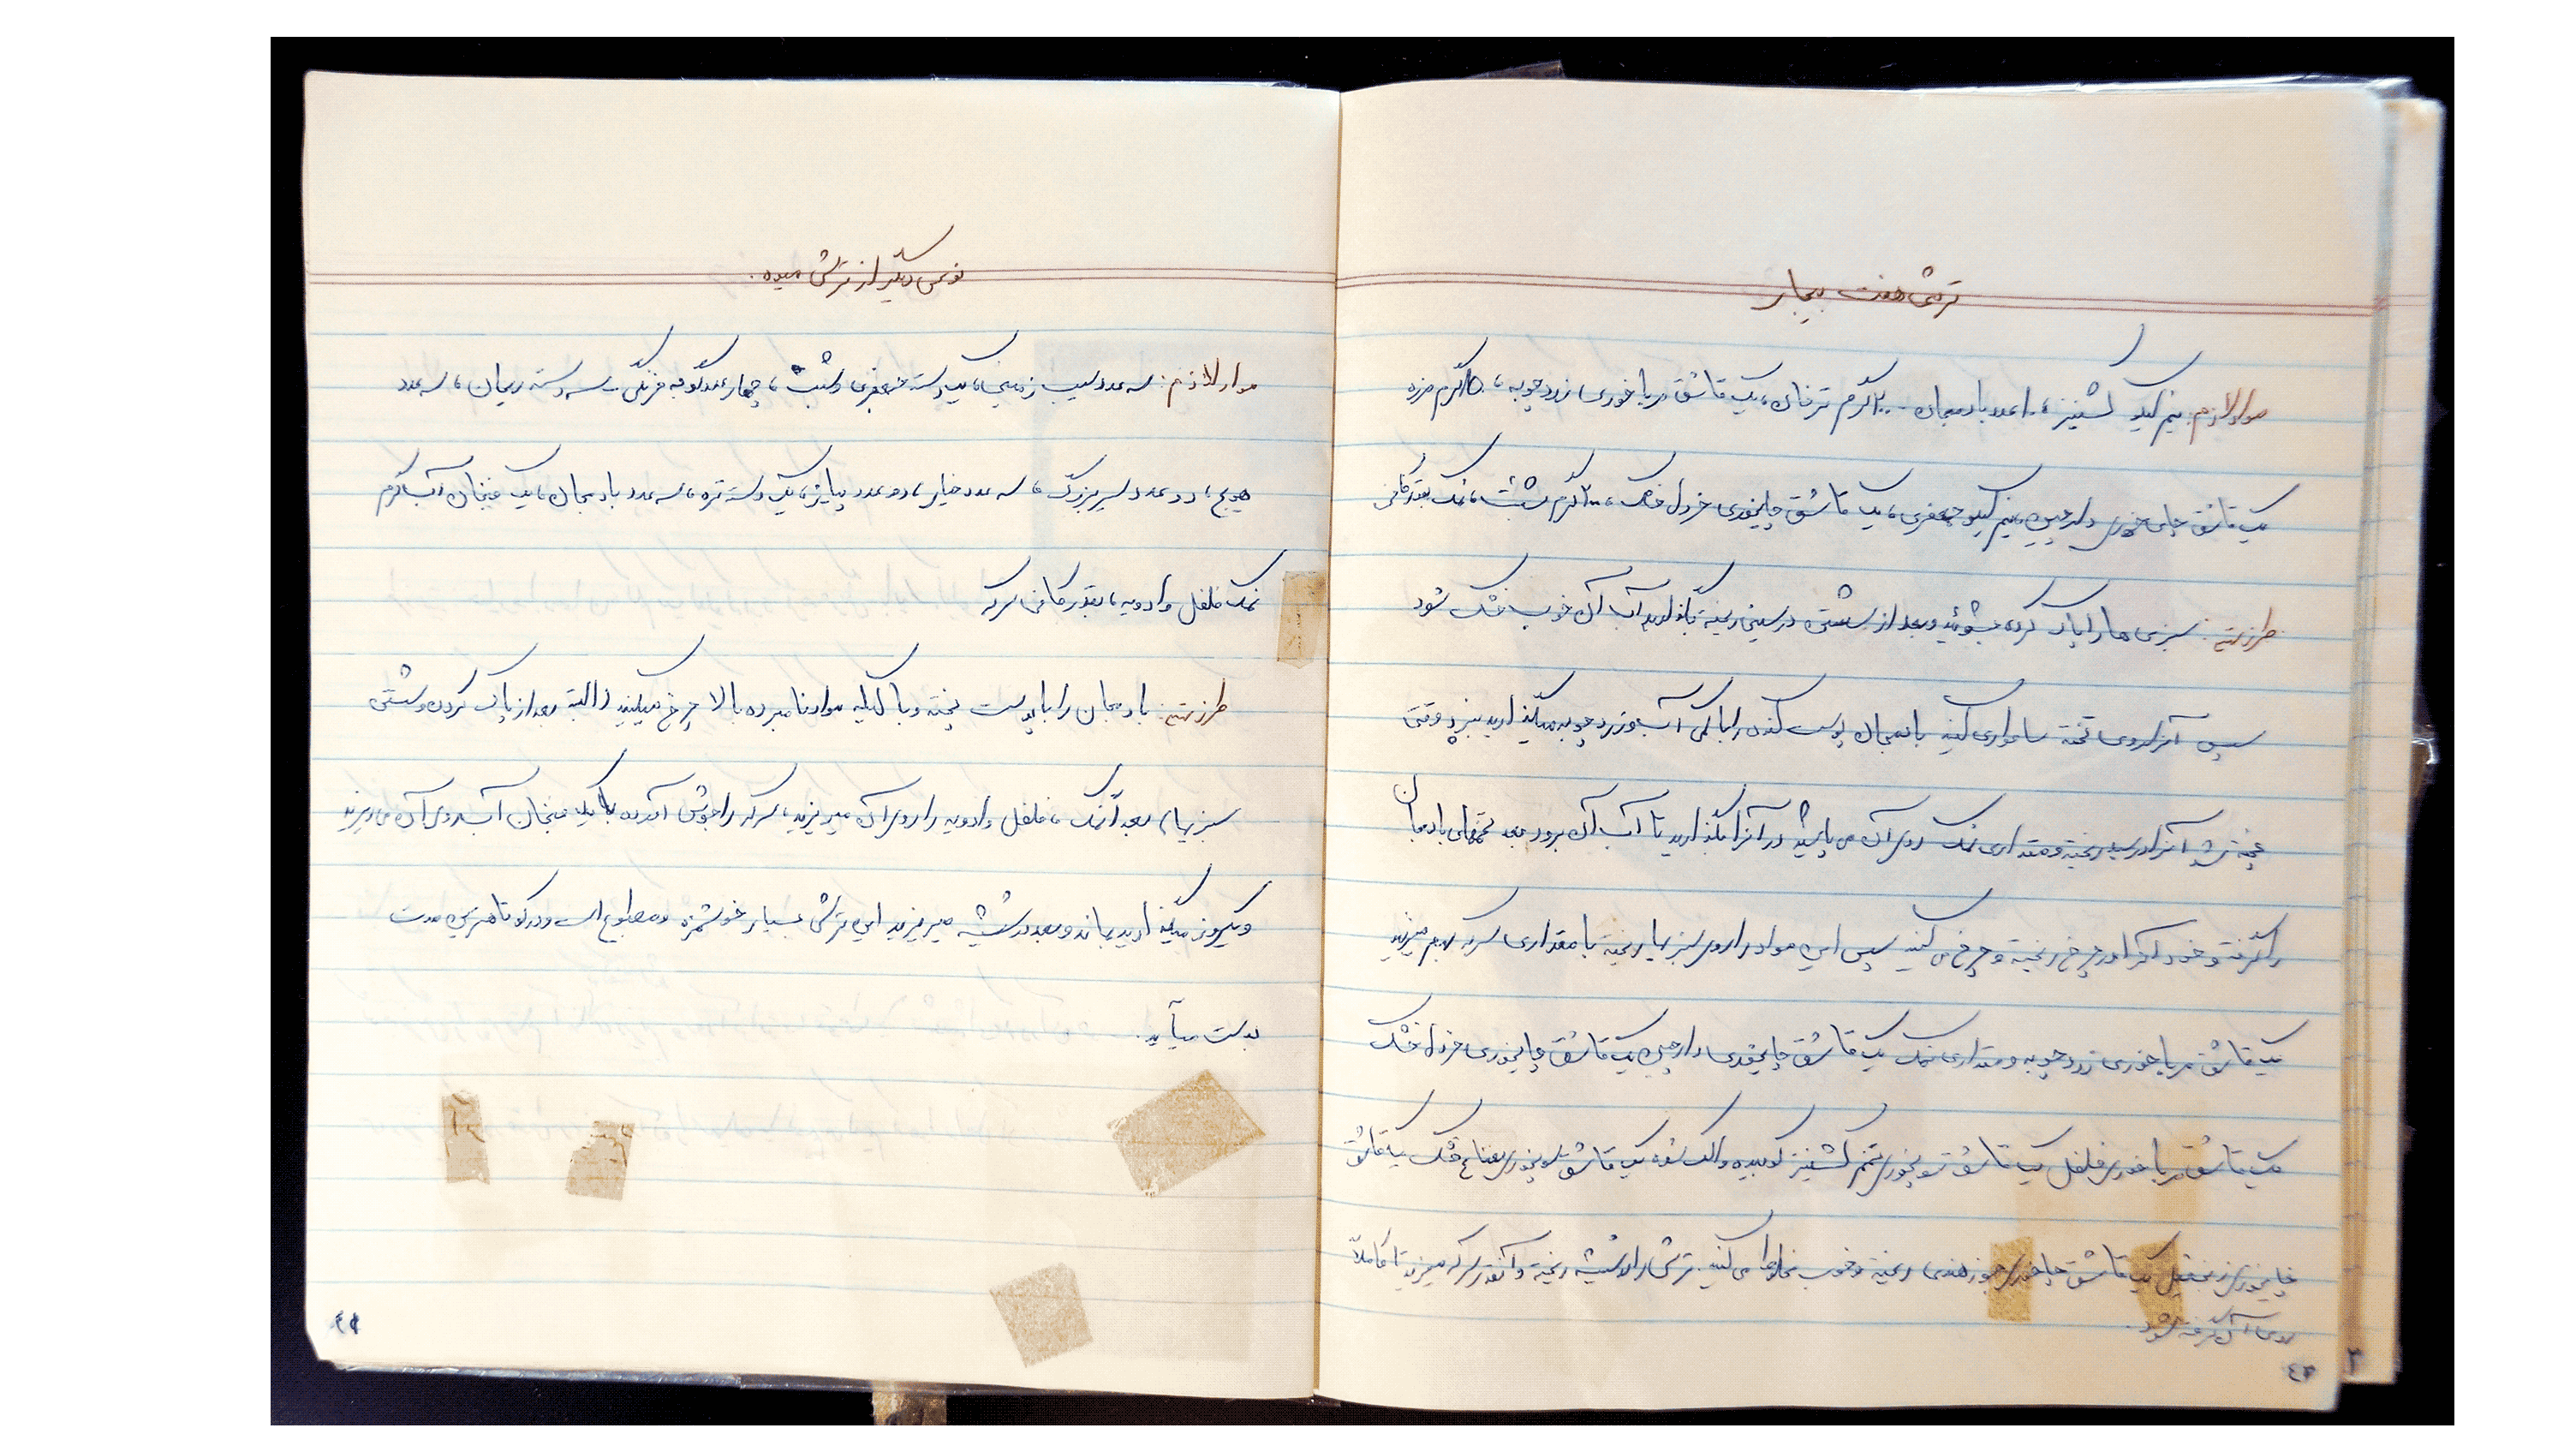 ترشی هفت بیجار
مواد لازم: نیم کیلو گشنیز، ۱۰ عدد بادمجان ۲۰۰ گرم ترخان، یک قاشق مرباخوری زردچوبه، ۱۵۰ گرم مرزه
یک قاشق چای خوری دارچین، نیم کیلو جعفری، یک قاشق چایخوری خردل خشک، ۲۰۰ گرم شبت، نمک بقدر کافی
طرز تهیه: سبزی ها را پاک کرده بشوئید و بعد از شستن در سینی ریخته بگذارید آب آن خوب خشک شود
سپس آنرا روی تخته ساطوری کنید بادمجان پوست کنده را با کمی آب و زردچوبه میگذارید بپزد وقتی
پخته شد آنرا در سبد ریخته و مقداری نمک روی آن می پاشید و آنرا بگذارید تا آب آن برود بعد تخمهای بادمجان
را گرفته و خود آنرا در چرخ ریخته و چرخ می کنید سپس این مواد را روی سبزیها ریخته با مقداری سرکه بهم میزنید
یک قاشق مرباخوری زردچوبه و مقداری نمک یک قاشق چایخوری دارچین یک قاشق چایخوری خردل خشک
یک قاشق مرباخوری فلفل یک قاشق سوپخوری تخم گشنیز کوبیده و الک شده یک قاشق سوپخوری نعناع خشک یک قاشق
چایخوری زنجفیل یک قاشق چایخوری جوز هندی ریخته و خوب مخلوط می کنید. ترشی را در شیشه ریخته و آنقدر سرکه میریزید تا کاملاً
روی آن گرفته شود.
۴۳
نوعی دیگر از ترشی میوه.
مواد لازم: سه عدد سیب زمینی، یک دسته جعفری و شبت، چهار عدد گوجه فرنگی، سه دسته ریحان، سه عدد
هویج، دو عدد سیر بزرگ، سه عدد خیار، دو عدد پیاز، یک دسته تره، سه عدد بادمجان، یک فنجان آب گرم
نمک فلفل و ادویه، بقدر کافی سرکه
طرز تهیه: بادمجان را با پوست پخته و با کلیه مواد نامبرده بالا چرخ میکنید (البته بعد از پاک کردن و شستن
سبزیها) بعداً نمک، فلفل و ادویه را روی آن میریزید، سرکه را جوش آمده با یک فنجان آب روی آن می ریزید
و یکروز میگذارید بماند و بعد در شیشه میریزید این ترشی بسیار خوشمزه و مطبوع است و در کوتاهترین مدت
بدست میآید.